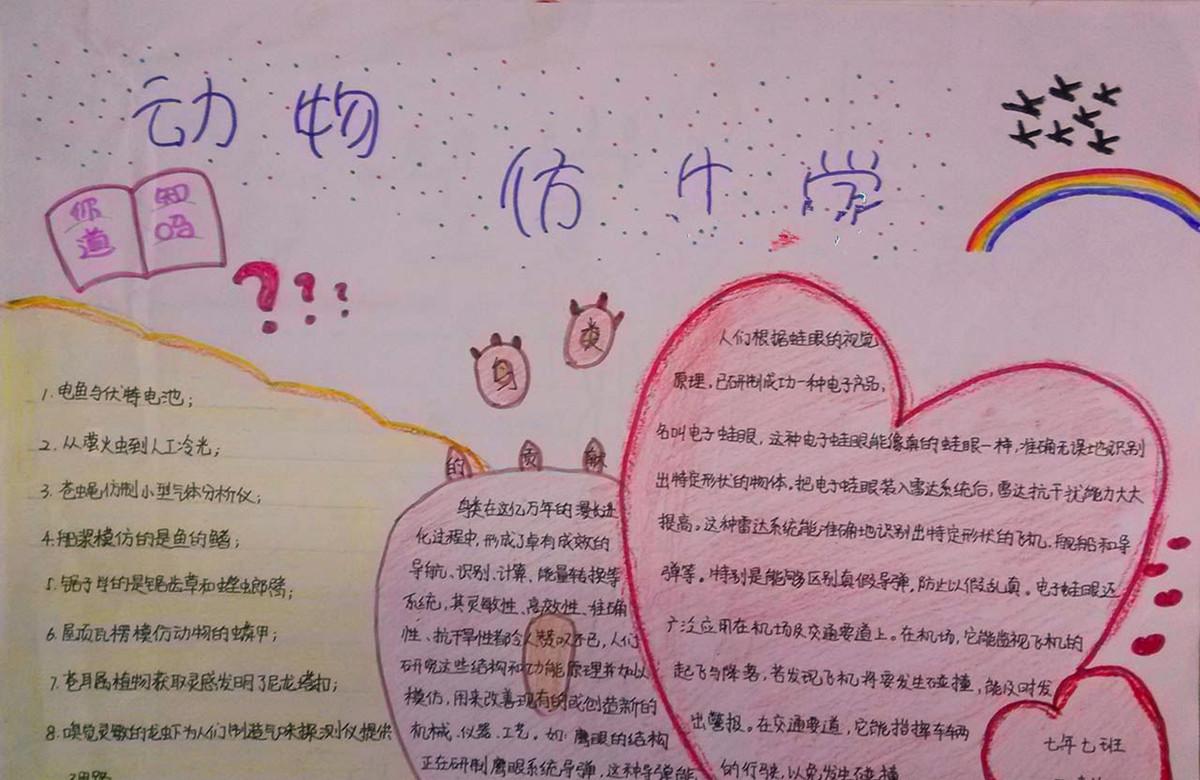 动物
仿生学
你知
道吗
???
1. 电鱼与伏特电池;
2. 从萤火虫到人工冷光;
3. 苍蝇仿制小型气体分析仪;
4. 模仿的是鱼的鳍;
5. 锯子学的是锯齿草和螳螂臂;
6. 屋顶瓦楞模仿动物的鳞甲;
7. 苍耳属植物获取灵感发明了尼龙搭扣;
8. 嗅觉灵敏的龙虾为人们制造气味探测仪提供
了思路
鸟类
的贡献
鸟类在这亿万年的漫长进
化过程中,形成了卓有成效的
导航、识别、计算、能量转换等
系统,其灵敏性、高效性、准确
性、抗干旱性都令人赞叹不已,人们
研究这些结构和功能原理并加以
模仿,用来改善现有的或创造新的
机械、仪器、工艺。如:鹰眼的结构
正在研制鹰眼系统导弹,这种导弹能
人们根据蛙眼的视觉
原理,已研制成功一种电子产品,
名叫电子蛙眼,这种电子蛙眼能像真的蛙眼一样,准确无误地识别
出特定形状的物体。把电子蛙眼装入雷达系统后,雷达抗干扰能力大大
提高。这种雷达系统能准确地识别出特定形状的飞机、舰船和导
弹等。特别是能够区别真假导弹,防止以假乱真。电子蛙眼还
广泛应用在机场及交通要道上。在机场,它能监视飞机的
起飞与降落,若发现飞机将要发生碰撞,能及时发
出警报。在交通要道,它能指挥车辆
的行驶,以免发生碰撞
七年七班